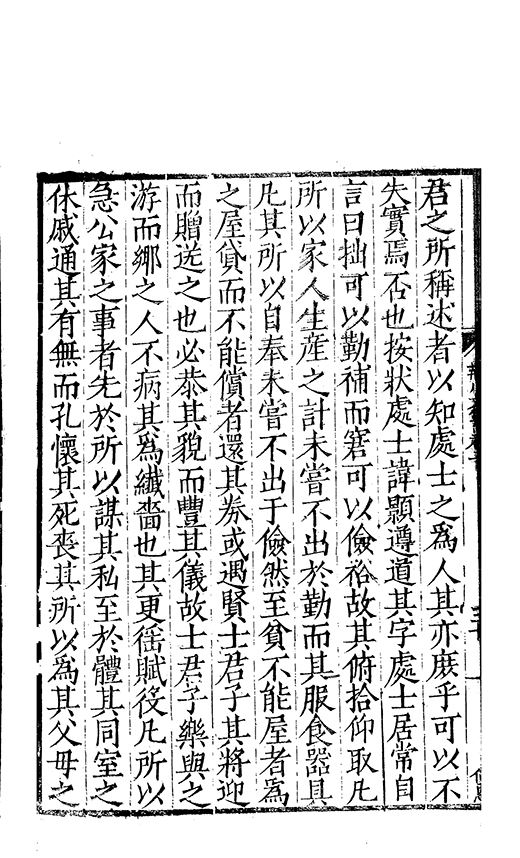 君之所稱述者以知處士之爲人其亦庶乎可以不
失實焉否也按狀處士諱顥遵道其字處士居常自
言曰拙可以勤補而窘可以儉裕故其俯拾仰取凡
所以家人生産之計未嘗不出於勤而其服食器具
凡其所以自奉未嘗不出于儉然至貧不能屋者爲
之屋貸而不能償者還其券或遇賢士君子其將迎
而贈送之也必恭其貌而豐其儀故士君子樂與之
游而鄉之人不病其爲纖嗇也其更徭賦役凡所以
急公家之事者先於所以謀其私至於體其同室之
休戚通其有無而孔懷其死喪其所以為其父母之